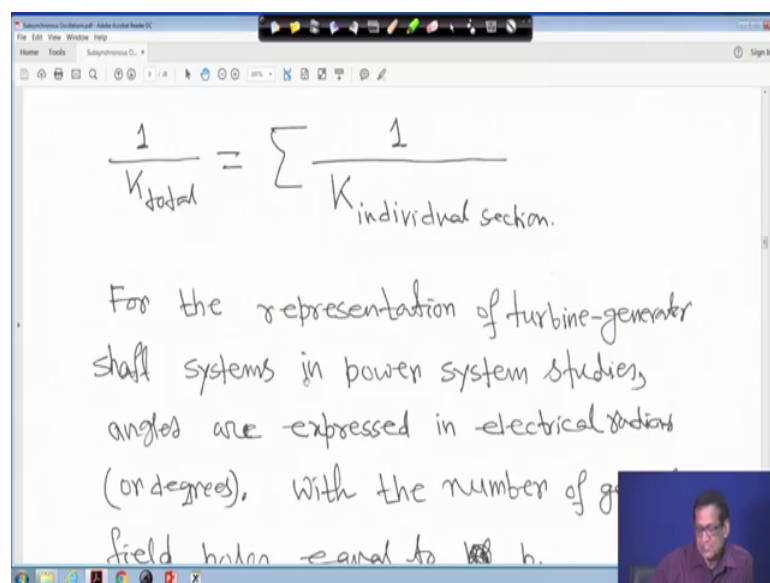 Subsynchronous Oscillations.pdf - Adobe Acrobat Reader DC
File Edit View Window Help
Home Tools Subsynchronous O... ×
Sign In
1
K total
= Σ
1
K individual section.
For the representation of turbine-generator
shaft systems in power system studies,
angles are expressed in electrical radians
(or degrees). With the number of
field poles equal to